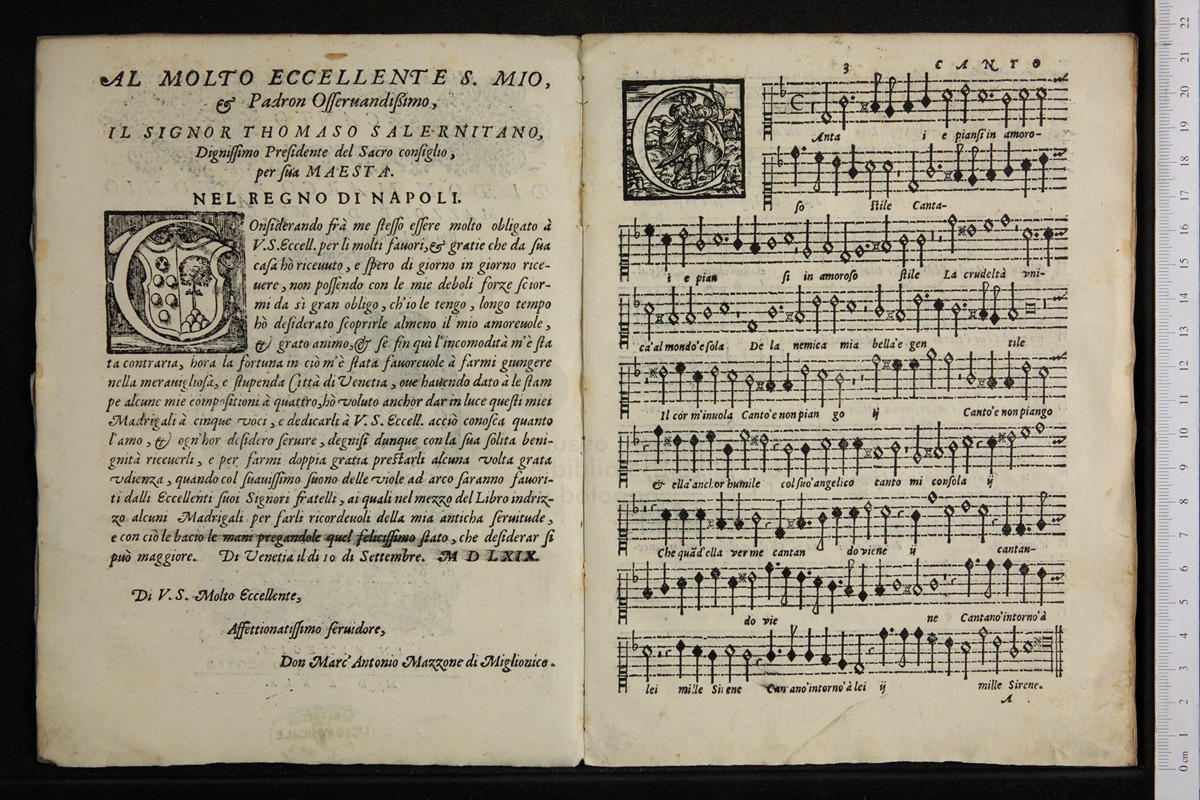 AL MOLTO ECCELLENTE S. MIO,
& Padron Osseruandißimo,
IL SIGNOR THOMASO SALERNITANO,
Dignissimo Presidente del Sacro consiglio,
per sua MAESTA.
NEL REGNO DI NAPOLI.
COnsiderando frà me stesso essere molto obligato à
V.S.Eccell. per li molti fauori,& gratie che da sua
casa hò riceuuto, e spero di giorno in giorno rice-
uere, non possendo con le mie deboli forze scior-
mi da sì gran obligo, ch'io le tengo, longo tempo
hò desiderato scoprirle almeno il mio amoreuole,
& grato animo,& se fin quì l'incomodità m'è sta
ta contraria, hora la fortuna in ciò m'è stata fauoreuole à farmi giungere
nella merauigliosa, e stupenda Città di Venetia, oue hauendo dato à le stam
pe alcune mie compositioni à quattro, hò voluto anchor dar in luce questi miei
Madrigali à cinque voci, e dedicarli à V.S. Eccell. acciò conosca quanto
l'amo, & ogn'hor desidero seruire, degnisi dunque con la sua solita beni-
gnità riceuerli, e per farmi doppia gratia prestarli alcuna volta grata
vdienza, quando col suauissimo suono delle viole ad arco saranno fauori-
ti dalli Eccellenti suoi Signori fratelli, ai quali nel mezzo del Libro indriz-
zo alcuni Madrigali per farli ricordeuoli della mia anticha seruitude,
e con ciò le bacio le mani pregandole quel felicissimo stato, che desiderar si
può maggiore. Di Venetia il dì 10 di Settembre. MDLXIX.
Di V. S. Molto Eccellente,
Affettionatissimo seruidore,
Don Marc'Antonio Mazzone di Miglionico.
3 CANTO
CAnta i e piansi in amoro-
so stile Canta-
i e pian si in amoroso stile La crudeltà vni-
ca'al mondo'e sola De la nemica mia bella'e gen tile
Il cor m'inuola Canto'e non pian go ij Canto'e non piango
& ella'anchor humile col suo'angelico canto mi consola ij
Che quãd'ella ver me cantan do viene ij cantan-
do vie ne Cantano'intorno'à
lei mille Sirene Cantano'intorno'à lei ij mille Sirene.
A